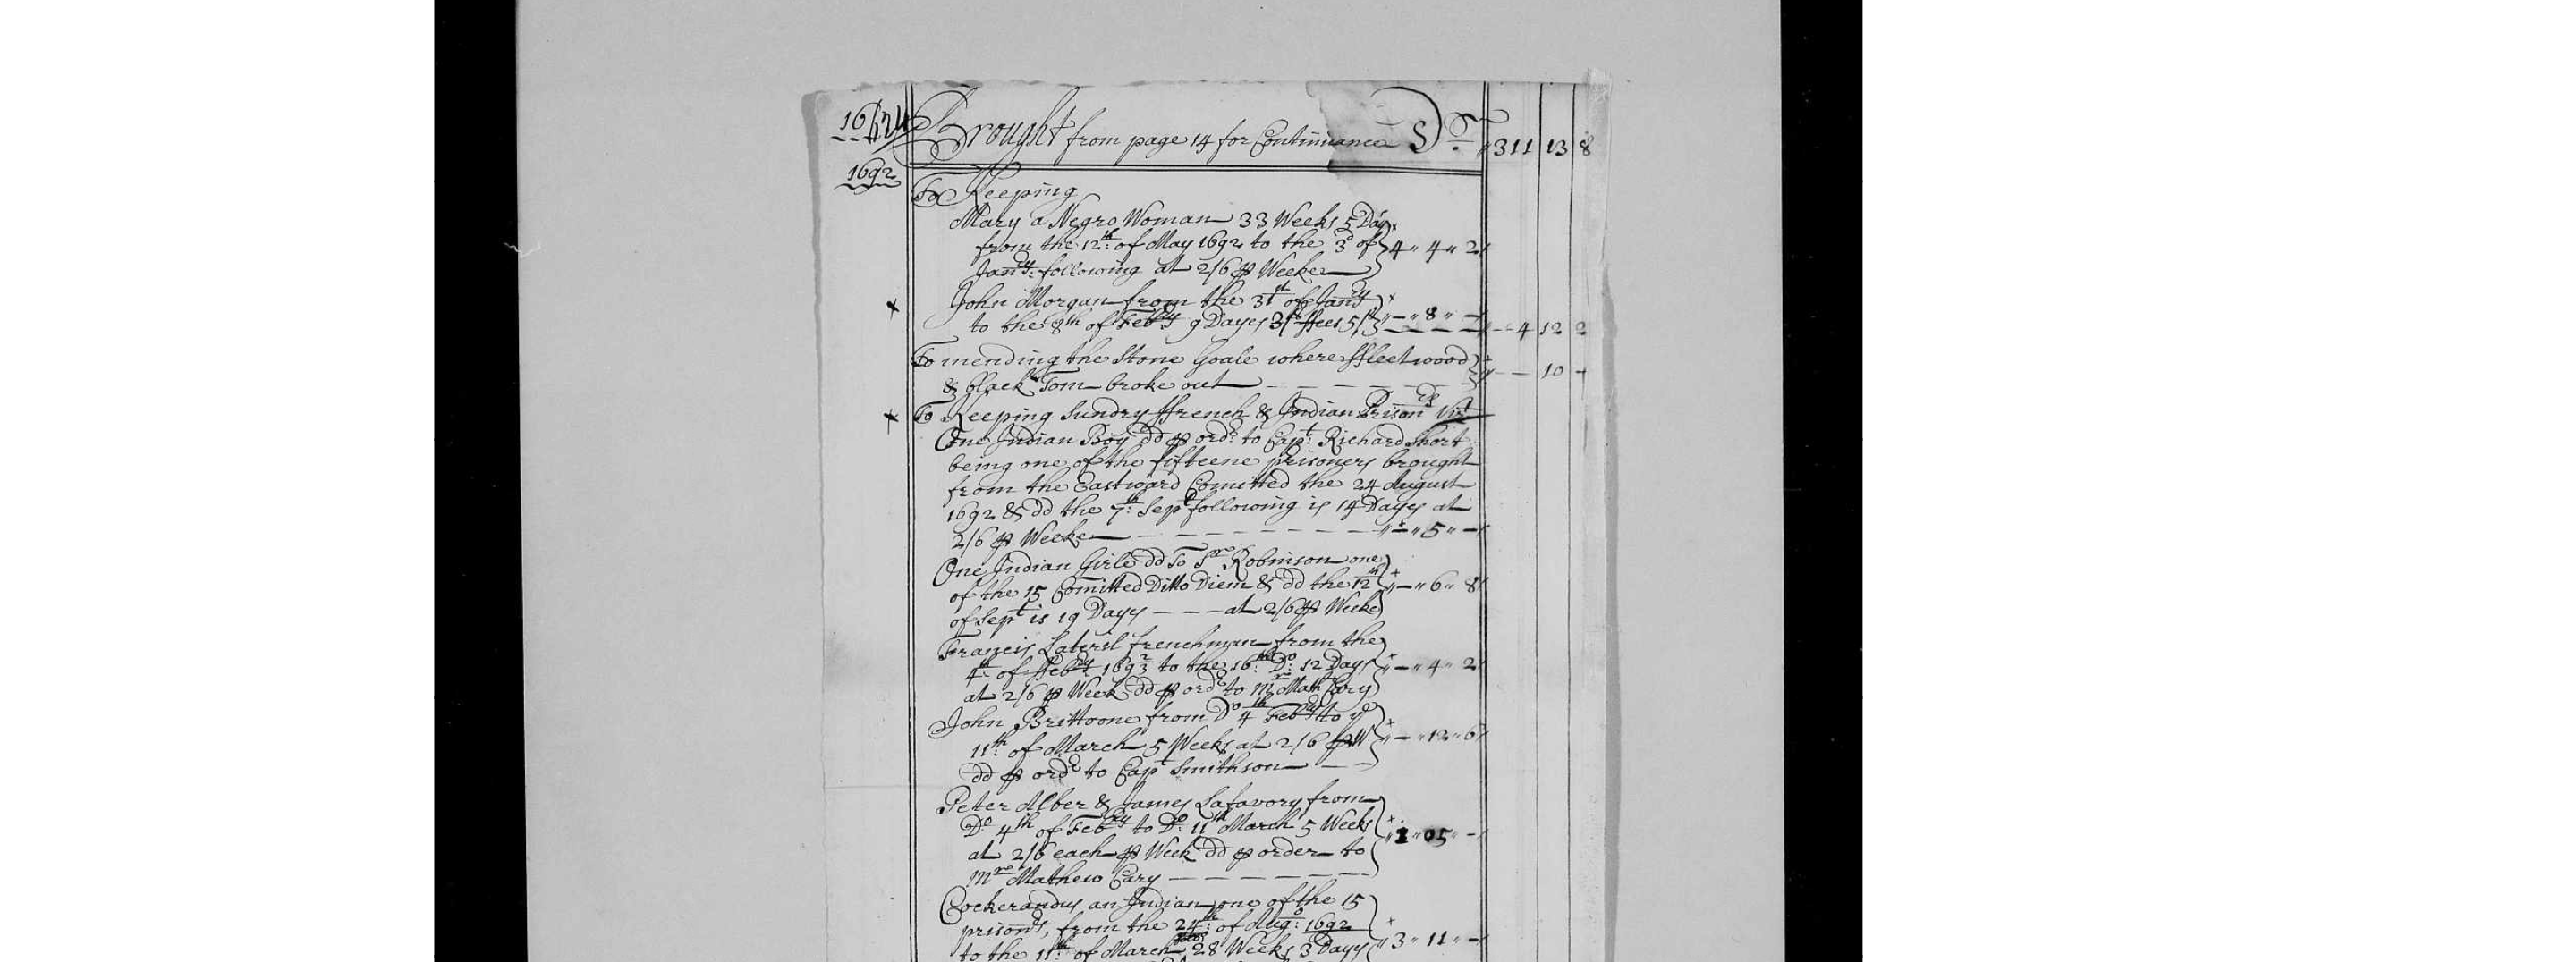 1692
Brought from page 14 for Continuance Dr. 311 13 8
1692
To Keeping
Mary a Negro Woman 33 Weeks 5 Days
from the 12th of May 1692 to the 3d of } 4 " 4 " 2
Janry: following at 2/6 ꝑ Weeke
John Morgan from the 31st of Janry
to the 8th of Febry 9 Dayes 3/ ffees 5/ } " — " 8 " — — 4 12 2
To mending the Stone Goale where ffleetwood
& black Tom broke out — — — — — 10 —
To Keeping Sundry ffrench & Indian Prisonrs Vizt
One Indian Boy dd ꝑ ordr to Capt: Richard Short
being one of the fifteene prisoners brought
from the Eastward Comitted the 24 August
1692 & dd the 7th: Sept following is 14 Dayes at
2/6 ꝑ Weeke — — — — — — — " — " 5 " —
One Indian Girle dd To Robinson one
of the 15 Comitted Ditto Diem & dd the 12th } " — " 6 " 8
of Sept is 19 Dayes — — — at 2/6 ꝑ Weeke
Francis frenchman from the
4th of ffebry 1692/3 to the 16th Do: 12 Days } " — " 4 " 2
at 2/6 ꝑ Week dd ꝑ ordr to Mr Math Cary
John Brittoone from Do 4th Febry to ye
11th: of March 5 Weeks at 2/6 ꝑ W } " — " 12 " 6
dd ꝑ ordr to Capt Smithson — —
Peter Alber & James Lafavory from
Do 4th of Febry to Do: 11th March 5 Weeks
at 2/6 each ꝑ Week dd ꝑ order to } " 1 " 05 " —
Mr Mathew Cary — — — — —
Cockerandus an Indian one of the 15
prisonrs, from the 24th: of Augo: 1692
to the 11th: of March 28 Weeks 3 Dayes } " 3 " 11 " —